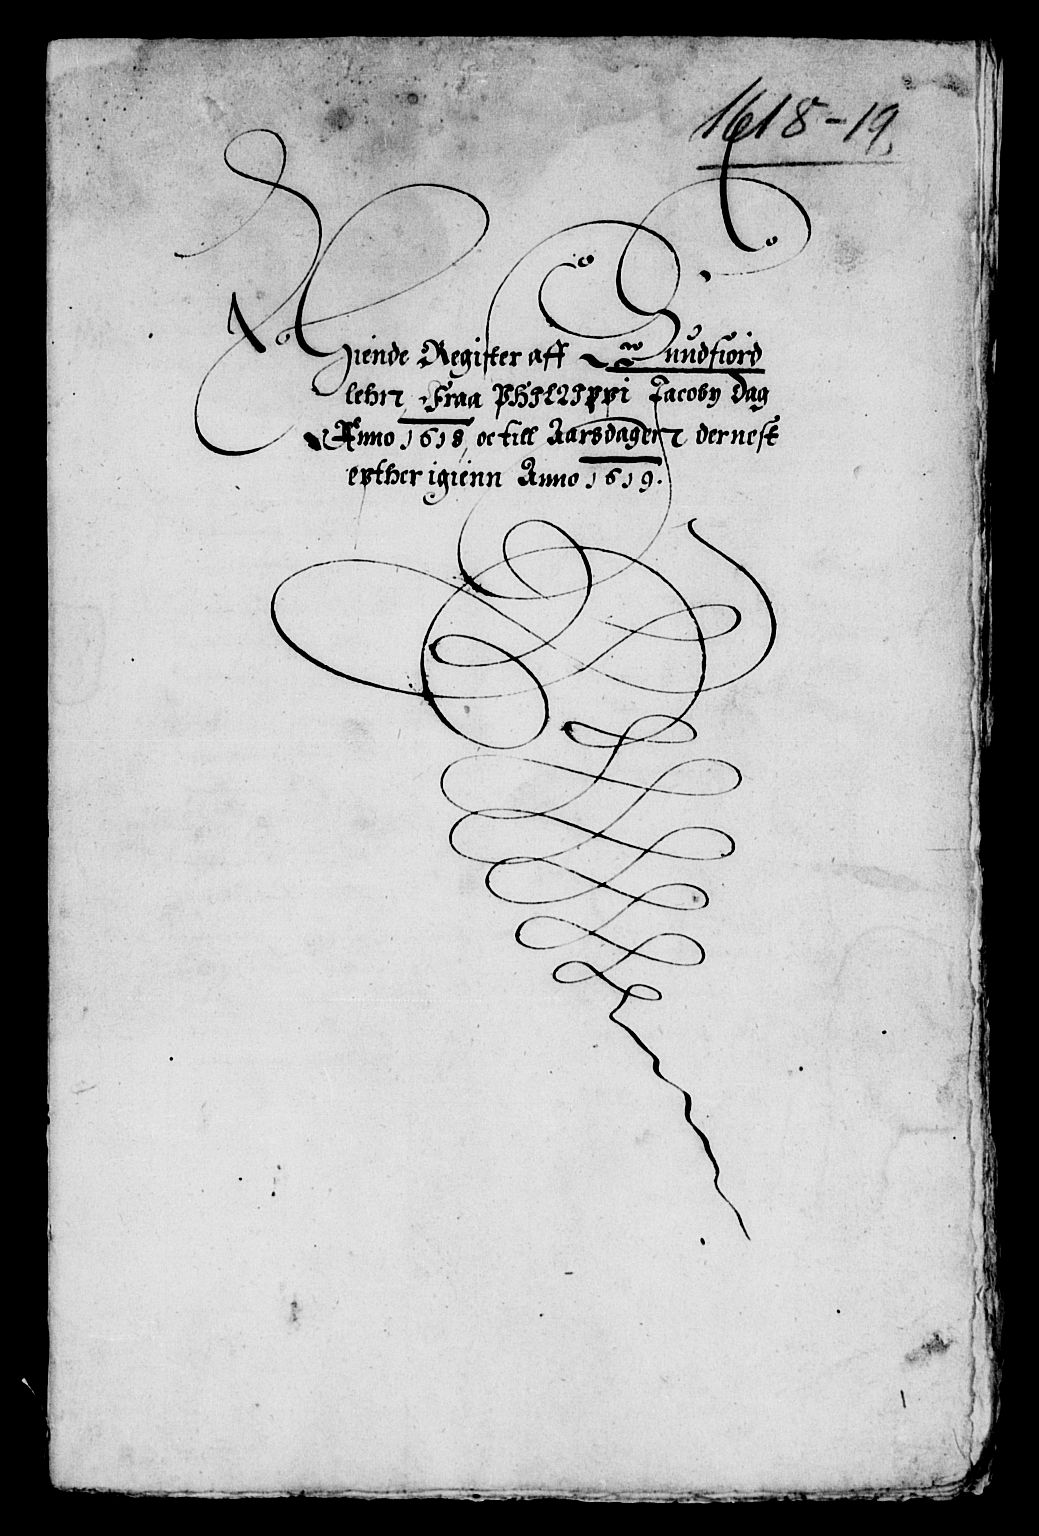 1618-19.
Tiende Register aff Sundfiord
lehn Fraa PHILIPPI Jacoby dag
Anno 1618 oc till Aarsdagen dernest
epther igienn Anno 1619.
1